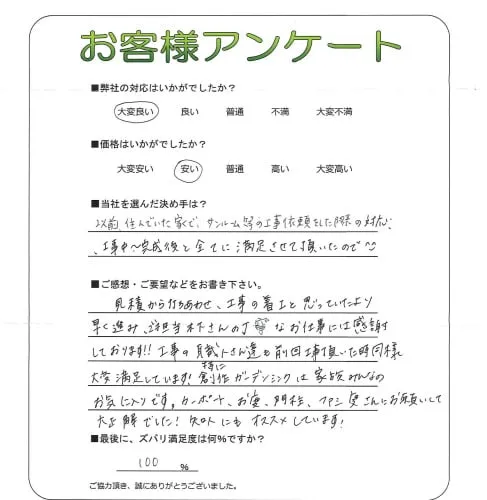 お客様アンケート
■弊社の対応はいかがでしたか？
大変良い 良い 普通 不満 大変不満
■価格はいかがでしたか？
大変安い 安い 普通 高い 大変高い
■当社を選んだ決め手は？
以前、住んでいた家で、サンルーム等の工事依頼をした際の対応、
、工事中〜完成後と全てに満足させて頂いたので
■ご感想・ご要望などをお書き下さい。
見積から打ちあわせ、工事の着工と思っていたより
早く進み、ご担当木下さんの丁 なお仕事には感謝
しております!! 工事の 職人さん達も前回工事頂いた時同様
大変満足しています! 特に創作ガーデンシンクは家族みんなの
お気に入りです。カーポート、お庭、門柱、 さんにお願いして
大正解でした! 知人にもオススメしています!
■最後に、ズバリ満足度は何%ですか？
100 %
ご協力頂き、誠にありがとうございました。